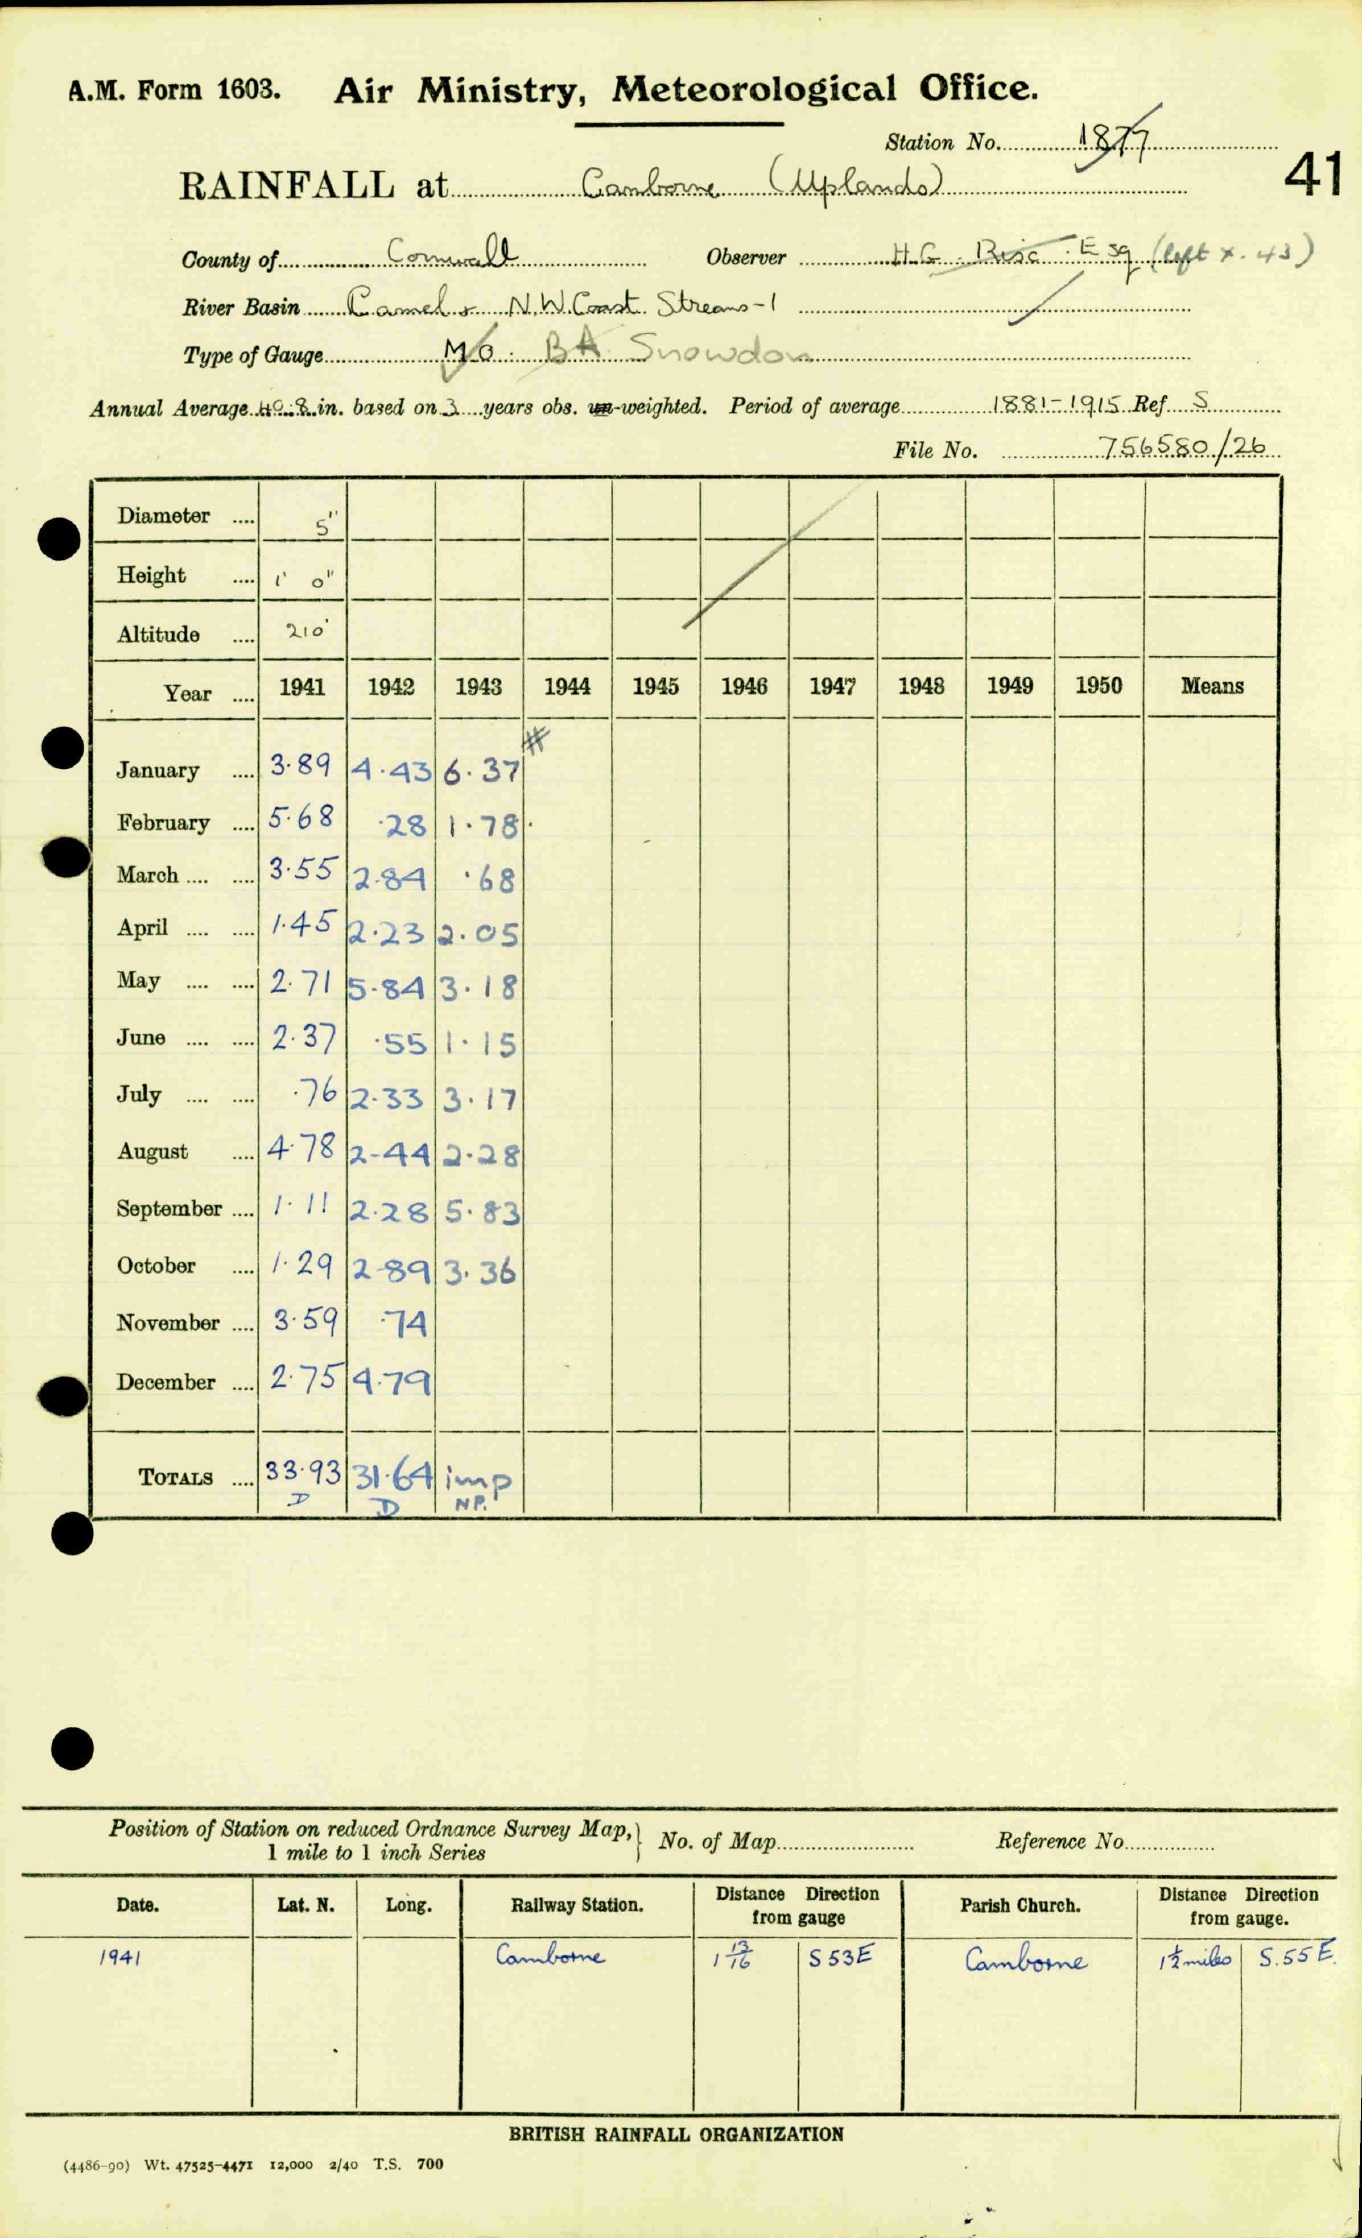 A.M. Form 1603. Air Ministry, Meteorological Office.
Station No. 1877
41
RAINFALL at Camborne (Uplands)
County of Cornwall Observer H.G. Esq (left x. 43)
River Basin Camel & N.W. Coast Streams-1
Type of Gauge M.O. BA Snowdon
Annual Average 40.8 in. based on 3 years obs. un-weighted. Period of average 1881-1915 Ref S
File No. 756580/26
Diameter .... 5"
Height .... 1' 0"
Altitude .... 210'
Year .... 1941 1942 1943 1944 1945 1946 1947 1948 1949 1950 Means
#
January .... 3.89 4.43 6.37
February .... 5.68 .28 1.78
March .... .... 3.55 2.84 .68
April .... .... 1.45 2.23 2.05
May .... .... 2.71 5.84 3.18
June .... .... 2.37 .55 1.15
July .... .... .76 2.33 3.17
August .... 4.78 2-44 2.28
September .... 1.11 2.28 5.83
October .... 1.29 2-89 3.36
November .... 3.59 .74
December .... 2.75 4.79
TOTALS .... 33.93 31.64 imp
D D NP.
Position of Station on reduced Ordnance Survey Map, } No. of Map Reference No
1 mile to 1 inch Series
Date. Lat. N. Long. Railway Station. Distance Direction from gauge Parish Church. Distance Direction from gauge.
1941 Camborne 1 13/16 S 53 E Camborne 1½ miles S. 55 E.
BRITISH RAINFALL ORGANIZATION
(4486-90) Wt. 47525-4471 12,000 2/40 T.S. 700